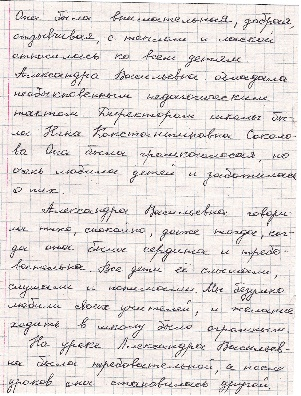 Она была внимательная, добрая
отзывчивая, с теплом и лаской
относилась ко всем детям.
Александра Васильевна обладала
необыкновенным педагогическим
тактом. Директором школы бы-
ла Нина Константиновна Соколо-
ва Она была громкоголосая, но
очень любила детей и заботилась
о них.
Александра Васильевна говори-
ла тихо, спокойно, даже тогда, ког-
да она была сердита и требо-
вательна. Все дети её слышали,
слушали и понимали. Мы безумно
любили своих учителей, и желание
ходить в школу было огромным.
На уроке Александра Васильев-
на была требовательной, а после
уроков она становилась другой,